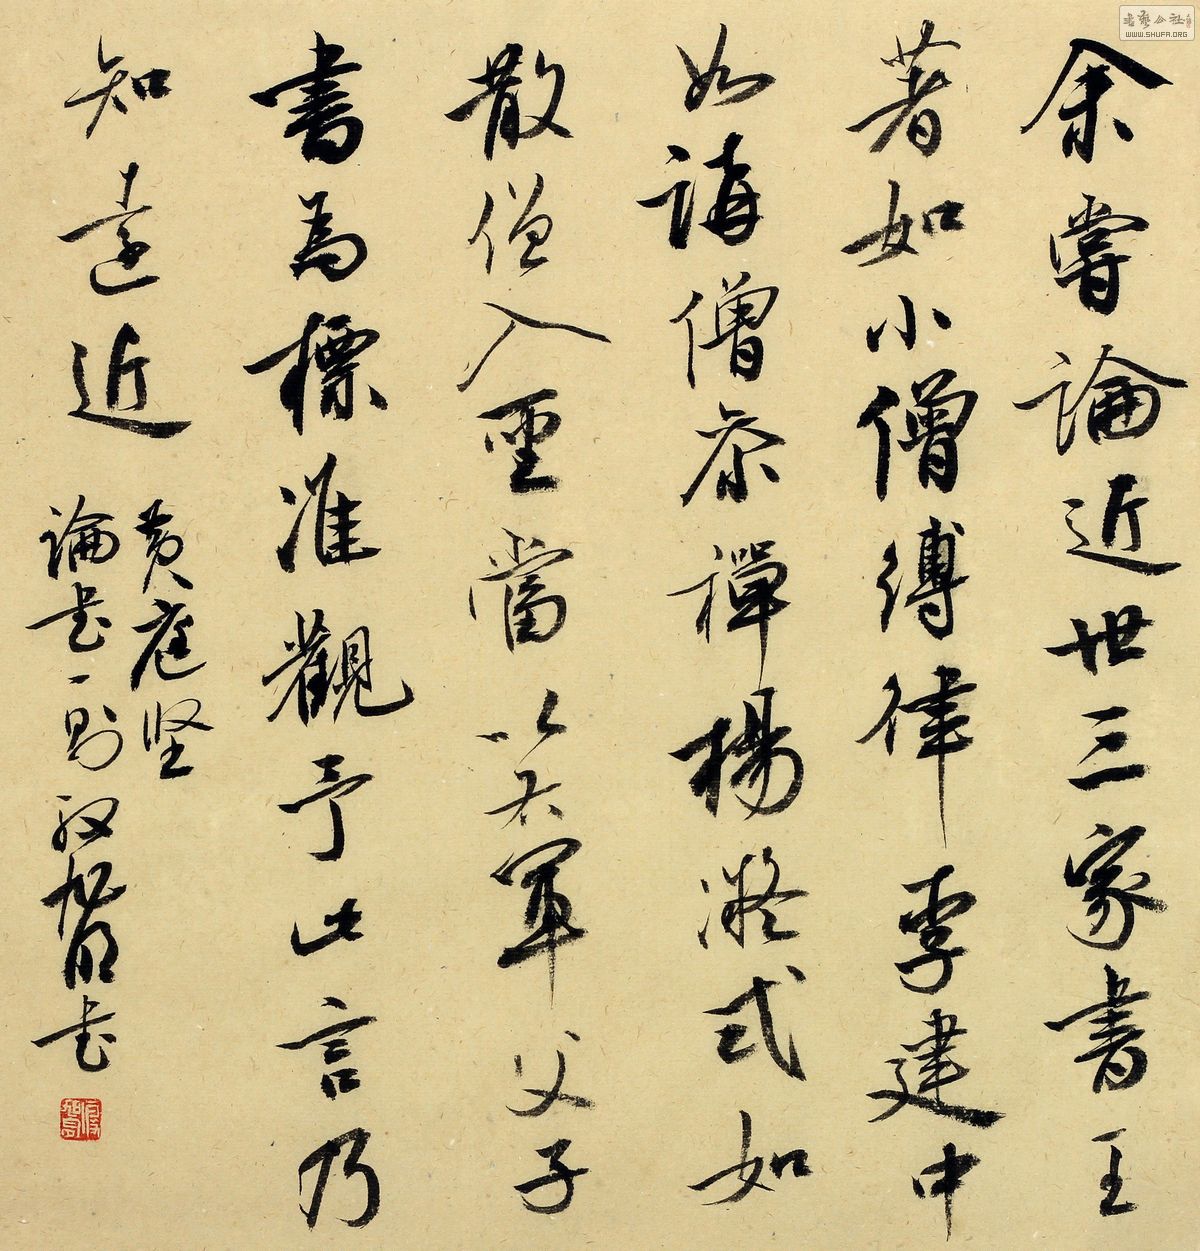 余嘗論近世三家書王
著如小僧縛律李建中
如講僧參禪楊凝式如
散僧入聖當以右軍父子
書為標准觀予此言乃
知遠近
黄庭坚
論书一則 旭明书
書藝公社
WWW.SHUFA.ORG